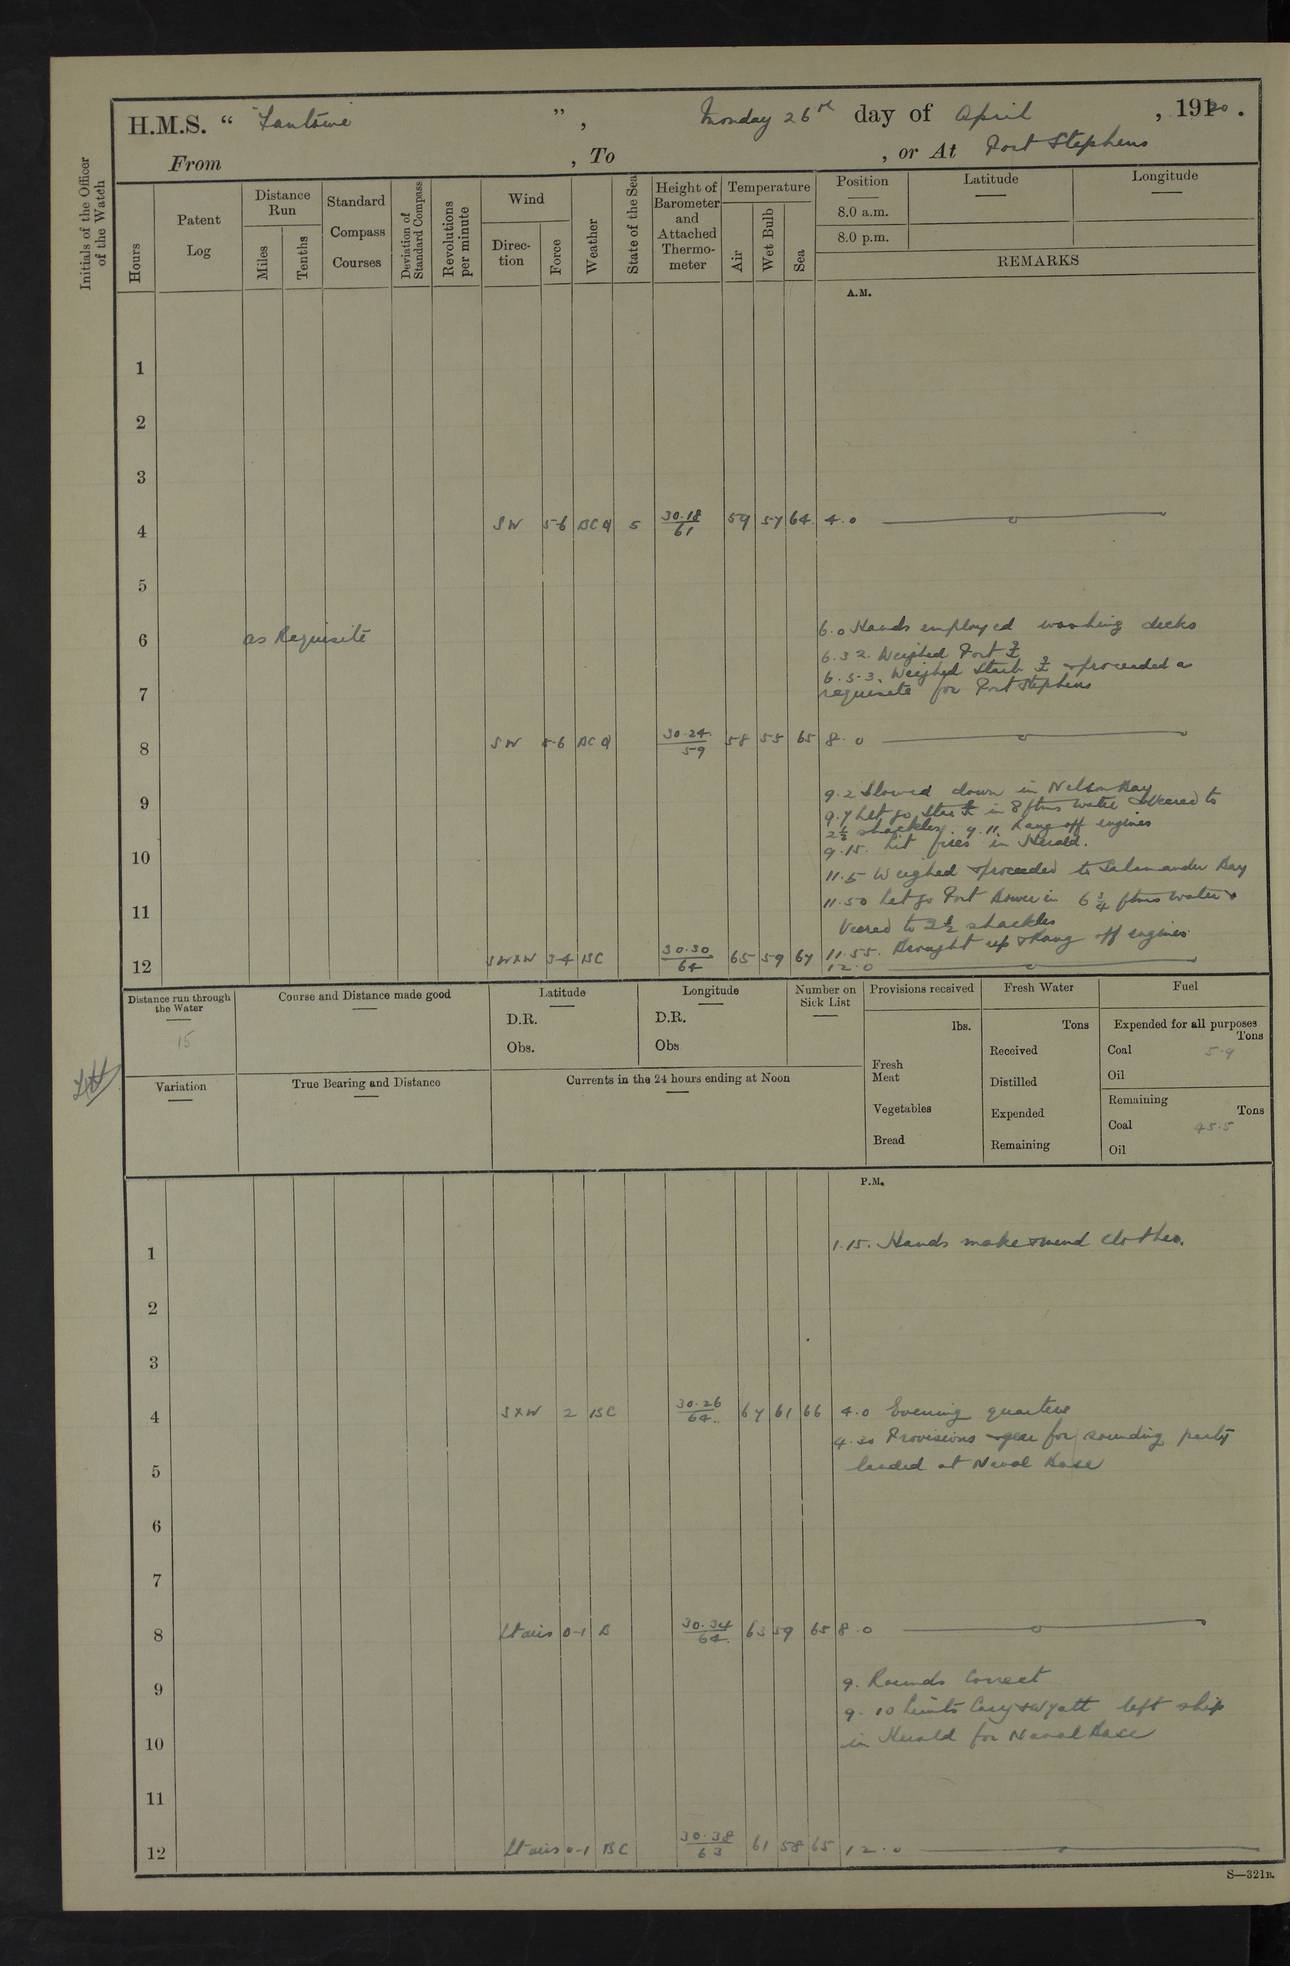 H.M.S. “ Fantome ” , Monday 26th day of April , 1920 .
From , To , or At Port Stephens
Initials of the Officer of the Watch
Hours
Patent Log
Distance Run
Miles
Tenths
Standard Compass Courses
Deviation of Standard Compass
Revolutions per minute
Wind
Direc-tion
Force
Weather
State of the Sea
Height of Barometer and Attached Thermo-meter
Temperature
Air
Wet Bulb
Sea
Position
Latitude
Longitude
8.0 a.m.
8.0 p.m.
REMARKS
A.M.
1
2
3
4 SW 5-6 BCQ 5 30.18/61 59 57 64 4.0
5
6 as Requisite
6.0 Hands employed washing decks
6.32. Weighed Port ⚓
6.53. Weighed Starb ⚓ & proceeded a
requisite for Port Stephens
7
8 SW 5-6 BCQ 30.24/59 58 55 65 8.0
9.2 Slowed down in Nelson Bay
9
9.7 Let go Star ⚓ in 8 fthms water & Veered to
2½ shackles. 9.11. Rang off engines
9.15. Lit fires in Herald.
10
11.5 Weighed & proceeded to Salamander Bay
11.50 Let go Port Bower in 6¾ fthms water &
11
Veered to 2½ shackles
11.55. Brought up & Rang off engines
12 SWxW 3-4 BC 30.30/64 65 59 67 12.0
Distance run through the Water
15
Course and Distance made good
Latitude
D.R.
Obs.
Longitude
D.R.
Obs
Number on Sick List
Provisions received
lbs.
Fresh Meat
Vegetables
Bread
Fresh Water
Tons
Received
Distilled
Expended
Remaining
Fuel
Expended for all purposes
Tons
Coal 5.9
Oil
Remaining
Tons
Coal 45.5
Oil
Variation
True Bearing and Distance
Currents in the 24 hours ending at Noon
P.M.
1
1.15. Hands make & mend clothes.
2
3
4 SxW 2 BC 30.26/64 67 61 66 4.0 Evening quarters
4.30 Provisions & gear for sounding party
5
landed at Naval Base
6
7
8 Lt airs 0-1 B 30.34/64 63 59 65 8.0
9
9. Rounds Correct
9.10 Lieuts Cary & Wyatt left ship
10
in Herald for Naval Base
11
12 Lt airs 0-1 BC 30.38/63 61 58 65 12.0
S—321B.